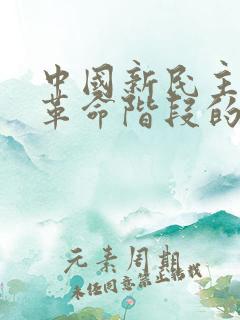 中國新民主
革命階段的
元素周期
未经同意禁止转载